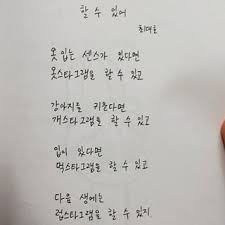 할 수 있어
최대호
옷 입는 센스가 있다면
옷스타그램을 할 수 있고
강아지를 키운다면
개스타그램을 할 수 있고
입이 있다면
먹스타그램을 할 수 있고
다음 생에는
럽스타그램을 할 수 있지.